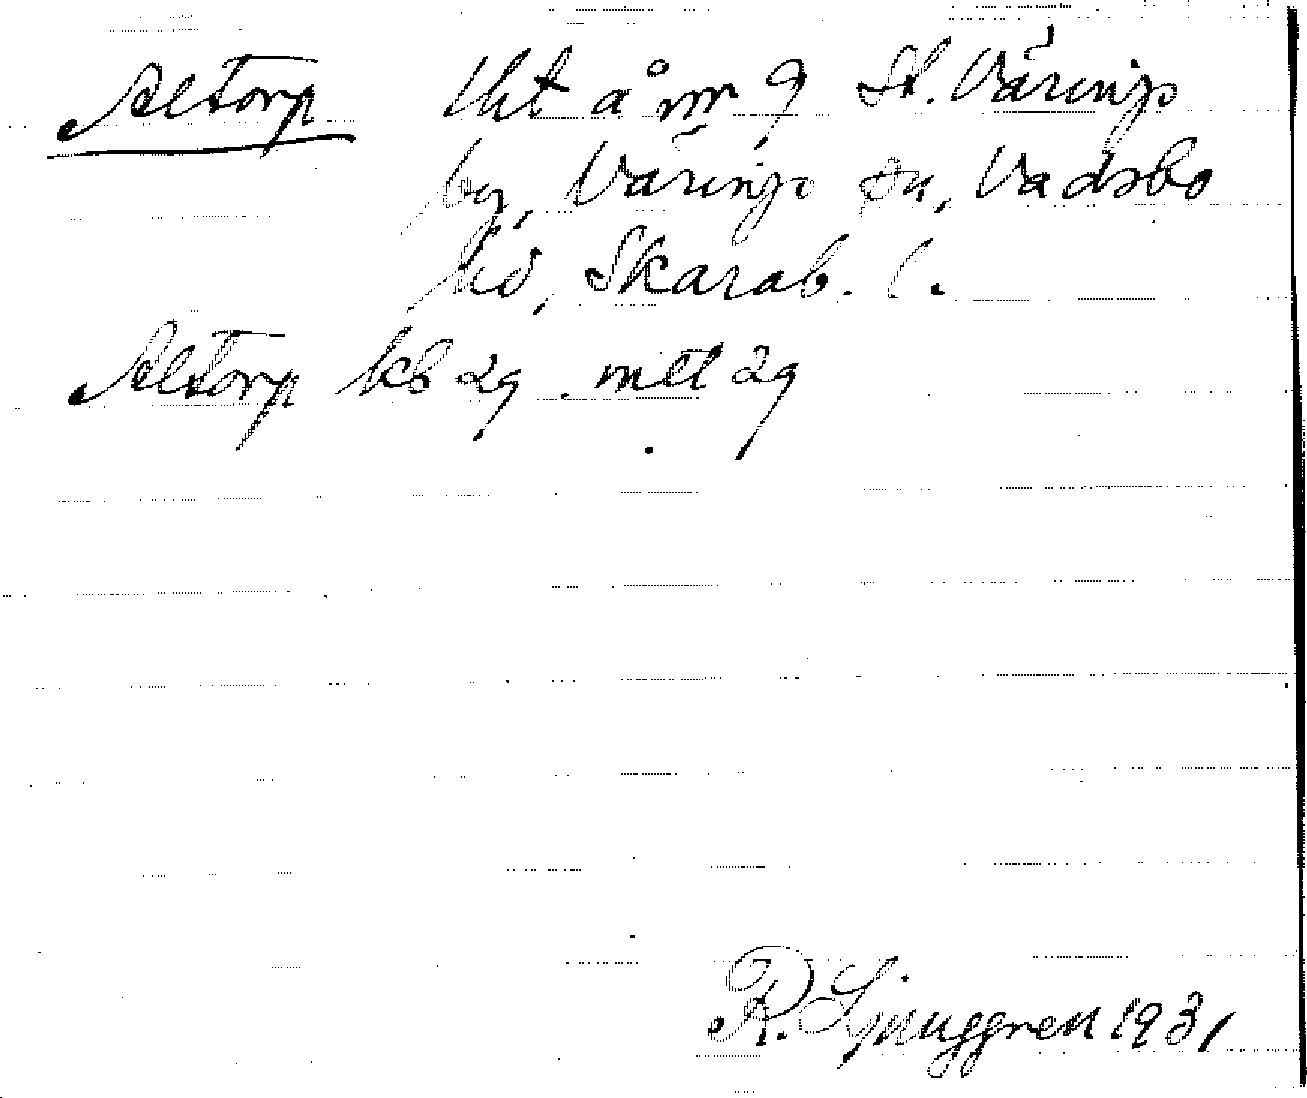 Altorp lht å nr 9 St. Väring
by, Väring sn, Vadsbo
hd, Skarab. l.
Altorp kb 29 mtl 29
R. Ljunggren 1931